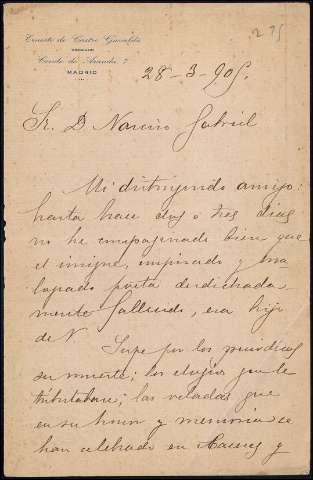 275
Ernesto de Castro
ABOGADO
Conde de Aranda 7
MADRID
28-3-905.
Sr. D Narciso Gabriel
Mi distinguido amigo:
hasta hace dos o tres dias
no he compaginado bien que
el insigne, inspirado y ma-
logrado poeta desdichada
mente fallecido, era hijo
de V.
Supe por los periodicos
su muerte; los elogios que le
tributaban; las veladas que
en su honor y memoria se
han celebrado en Caceres y